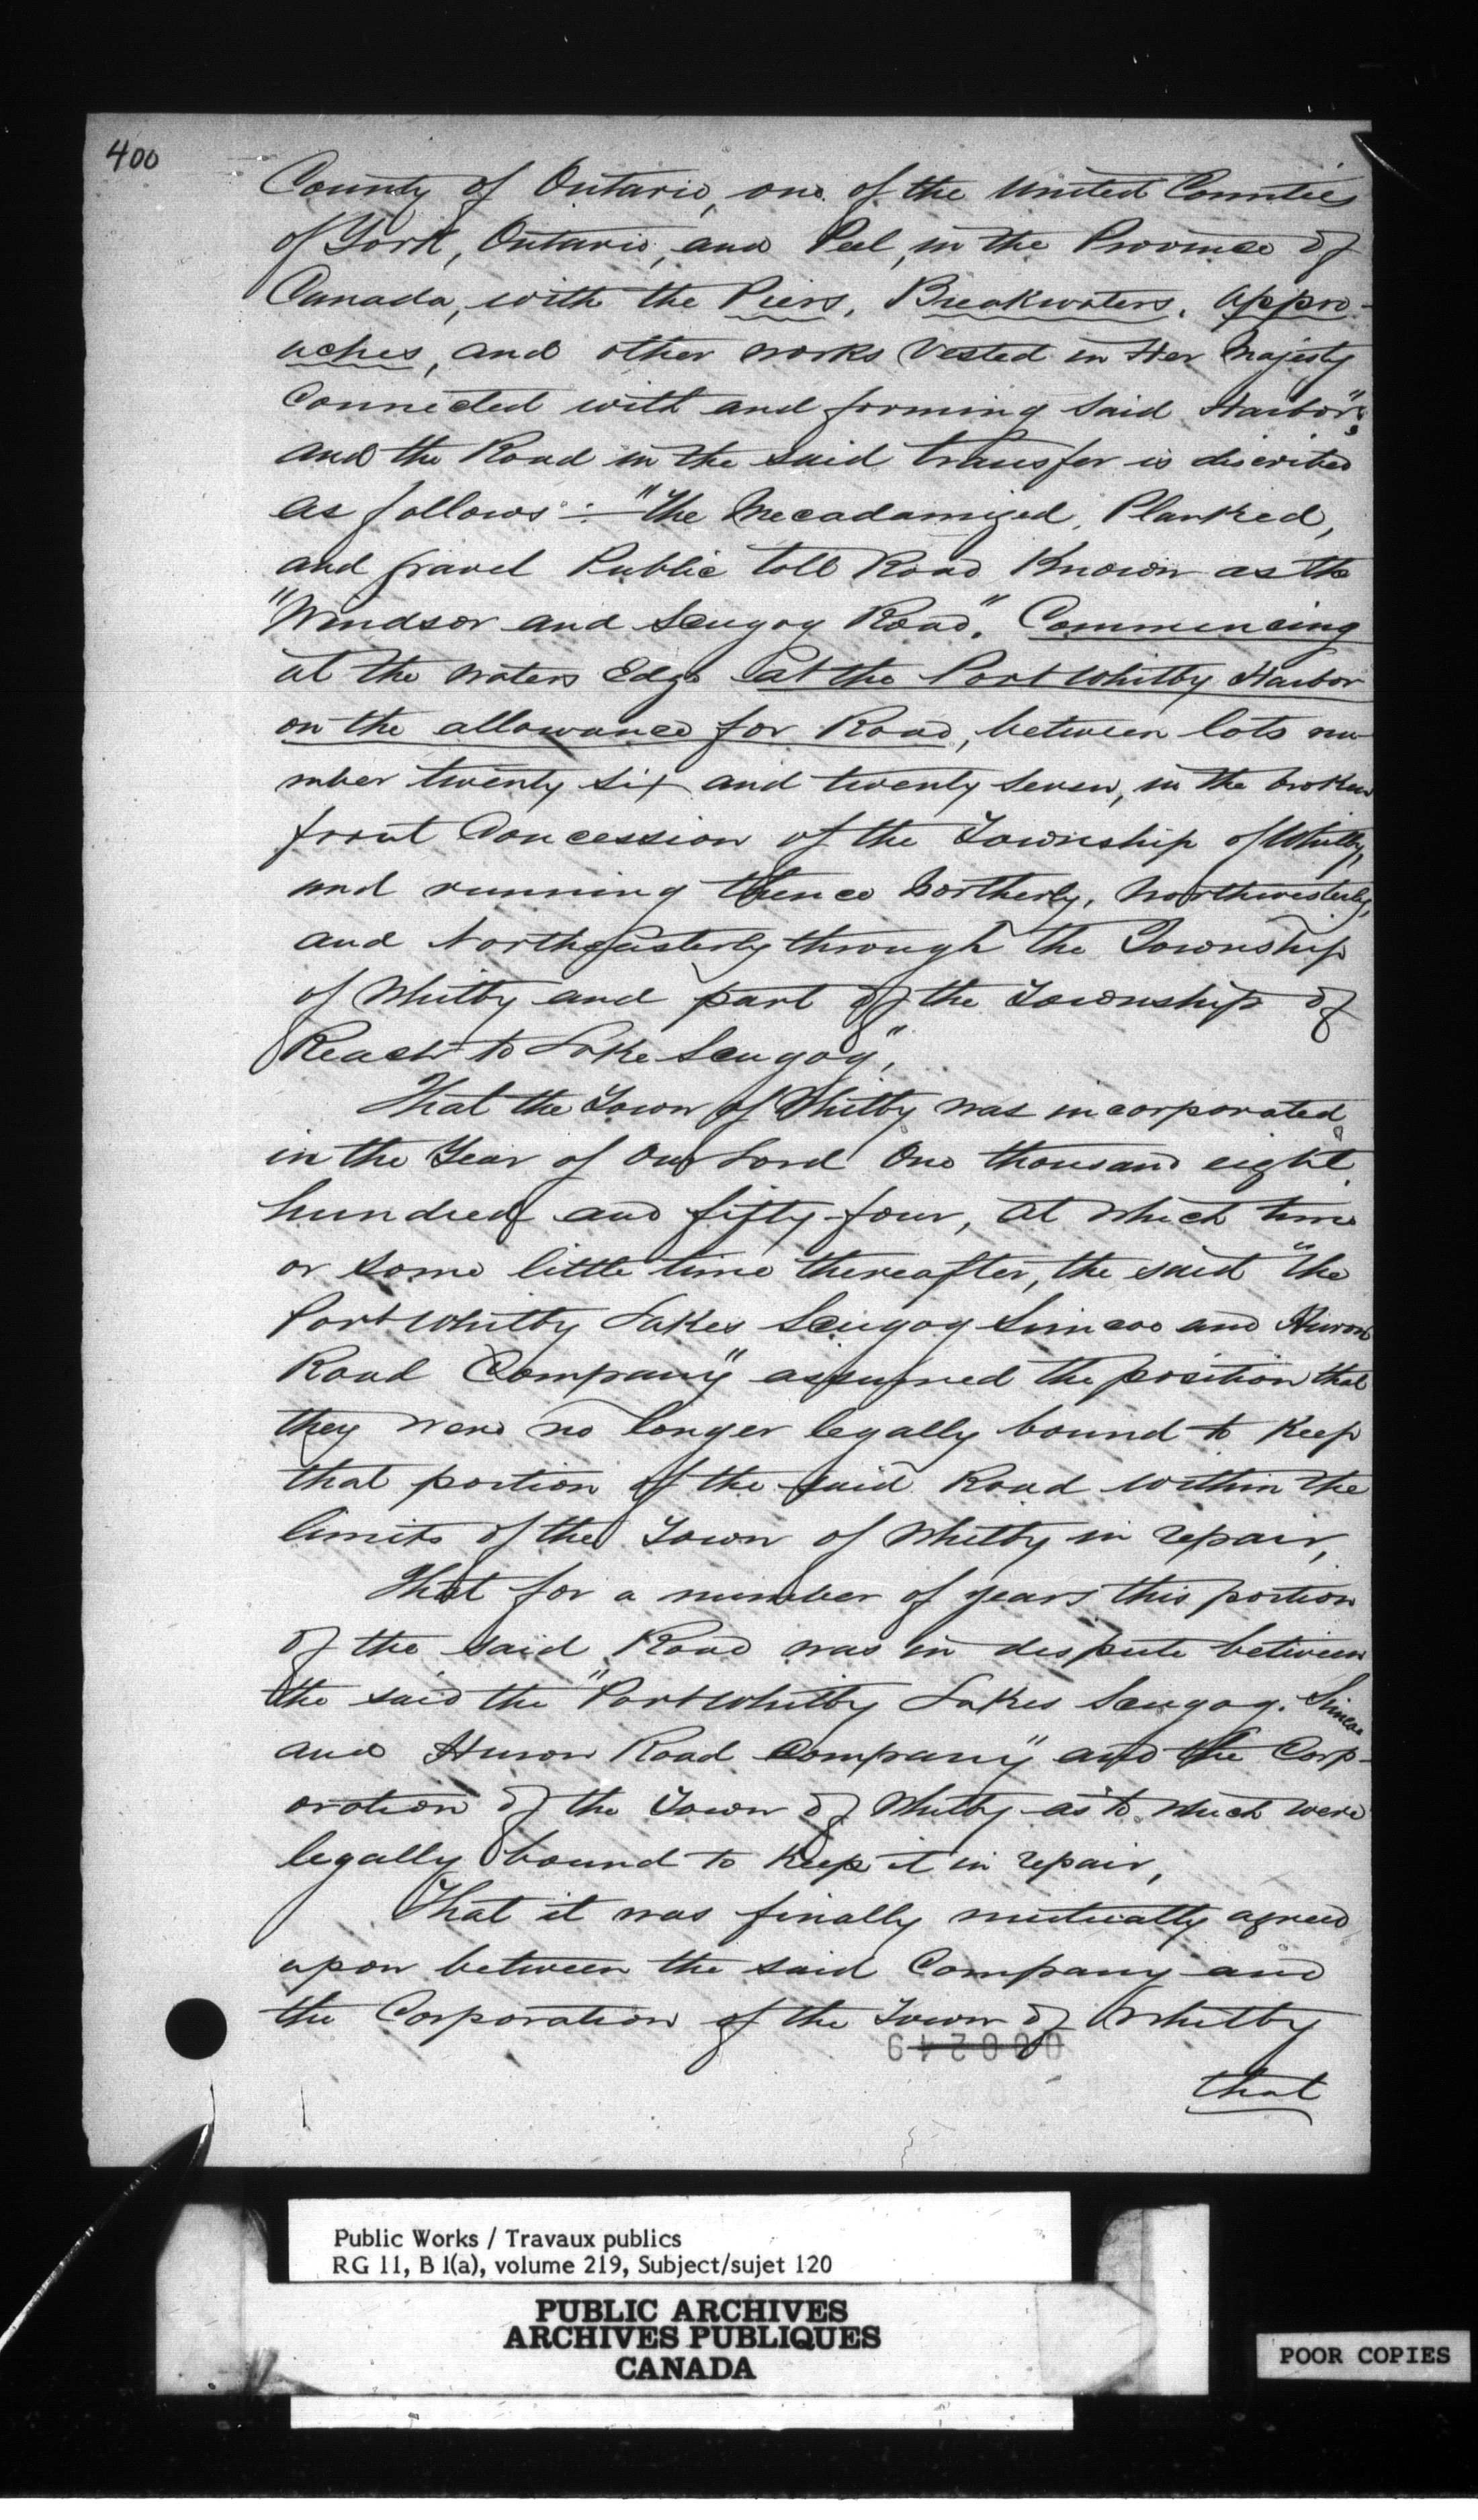 400
County of Ontario, one of the United Counties
of York, Ontario, and Peel, in the Province of
Canada, with the Piers, Breakwaters, appro-
aches, and other works vested in Her Majesty
Connected with and forming said Harbor",
and the Road in the said transfer is discribed
as follows :- "The Mecadamized, Planked,
and gravel Public toll Road Known as the
"Windsor and Scugog Road". Commencing
at the waters Edge at the Port Whitby Harbor
on the allowance for Road, between lots nu-
mber twenty six and twenty seven, in the broken
front Concession of the Township of Whitby,
and running thence Northerly, Northwesterly,
and Northeasterly through the Township
of Whitby and part of the Township of
Reach to Lake Scugog",
That the Town of Whitby was incorporated
in the Year of Our Lord One thousand eight
hundred and fifty-four, at which time
or some little time thereafter, the said "the
Port Whitby Lakes Scugog Simcoe and Huron
Road Company" assumed the position that
they were no longer legally bound to Keep
that portion of the said Road within the
limits of the Town of Whitby in repair,
That for a number of years this portion
of the said Road was in dispute between
the said the "Port Whitby Lakes Scugog. Simcoe
and Huron Road Company" and the Corp-
oration of the Town of Whitby as to which were
legally bound to Keep it in repair,
That it was finally mutually agreed
upon between the said Company and
the Corporation of the Town of Whitby
000249
that
Public Works / Travaux publics
RG 11, B 1(a), volume 219, Subject/sujet 120
PUBLIC ARCHIVES
ARCHIVES PUBLIQUES
CANADA
POOR COPIES